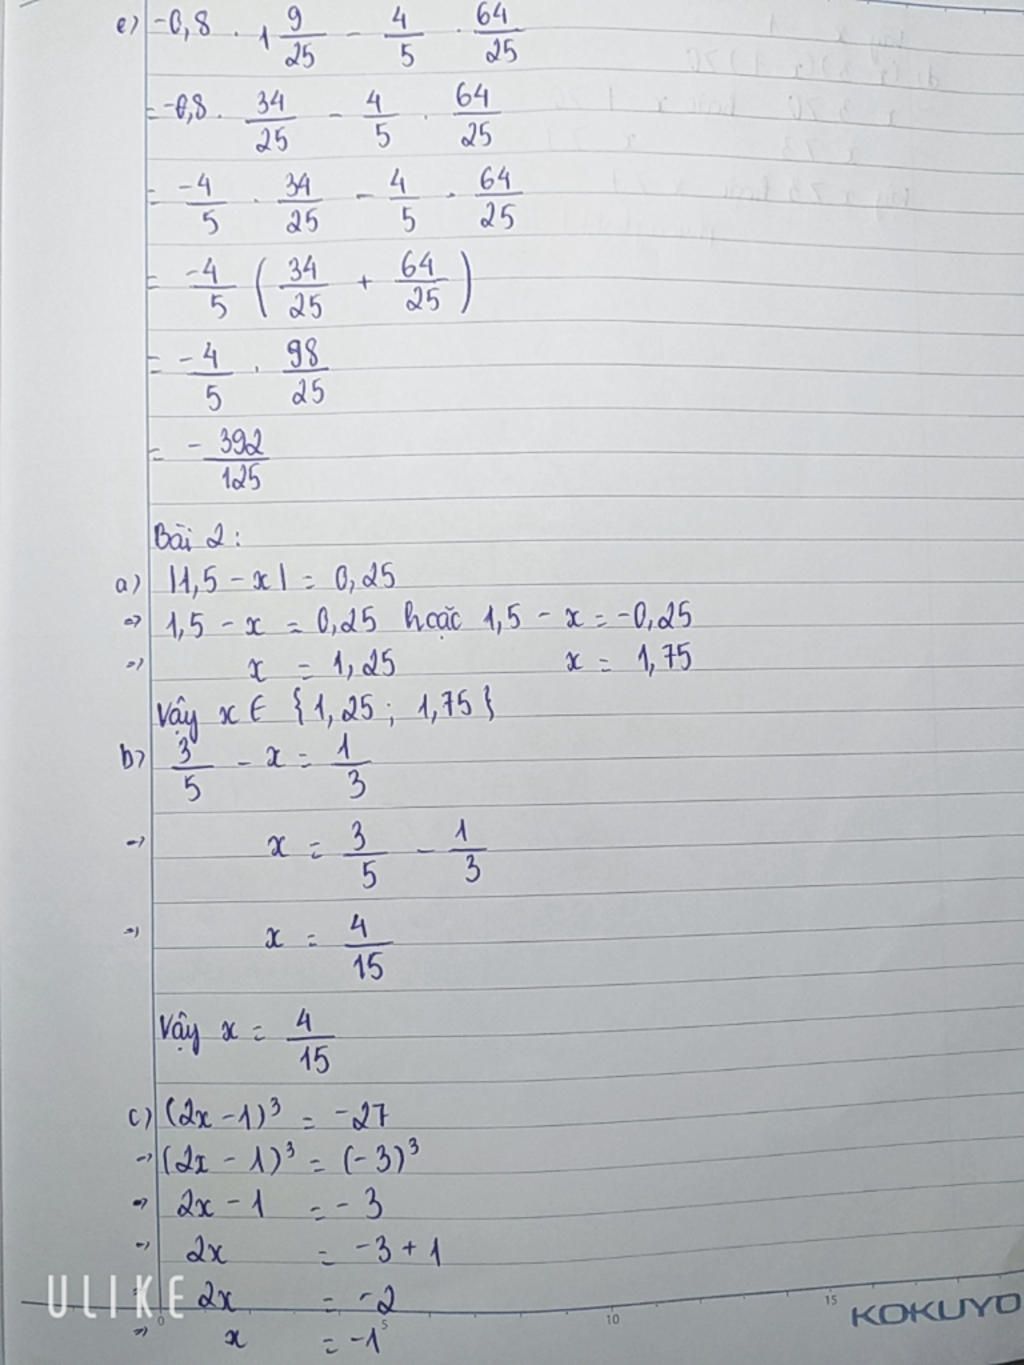 e) -0,8 . 1 9/25 - 4/5 . 64/25
= -0,8 . 34/25 - 4/5 . 64/25
= -4/5 . 34/25 - 4/5 . 64/25
= -4/5 (34/25 + 64/25)
= -4/5 . 98/25
= -392/125
Bài 2:
a) |1,5 - x| = 0,25
=> 1,5 - x = 0,25 hoặc 1,5 - x = -0,25
=> x = 1,25 x = 1,75
Vậy x ∈ {1,25; 1,75}
b) 3/5 - x = 1/3
=> x = 3/5 - 1/3
=> x = 4/15
Vậy x = 4/15
c) (2x - 1)³ = -27
=> (2x - 1)³ = (-3)³
=> 2x - 1 = -3
=> 2x = -3 + 1
=> 2x = -2
=> x = -1
ULIKE
0 5 10 15
KOKUYO